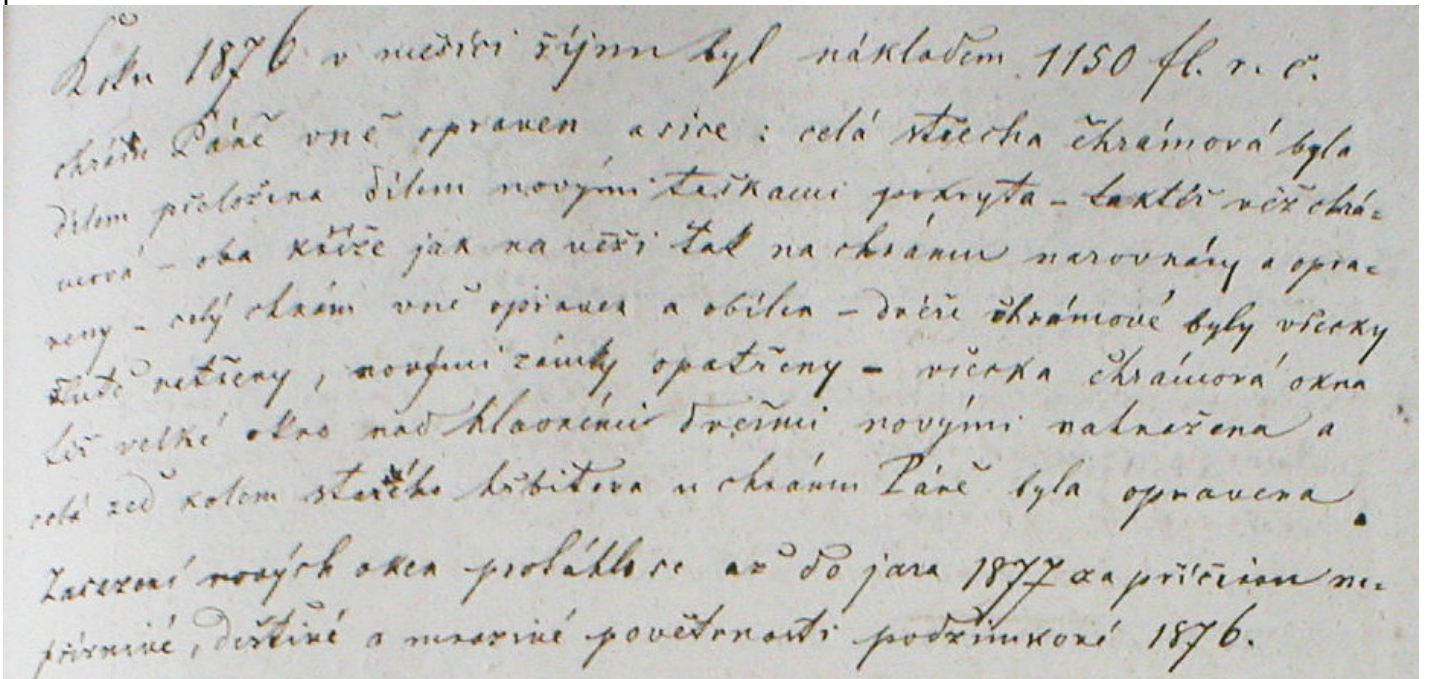 Roku 1876 v měsíci říjnu byl nákladem 1150 fl. r. č.
chrám Páně vně opraven a sice: celá střecha chrámová byla
dílem přeložena dílem novými taškami pokryta – taktéž věž chrá-
mová – oba kříže jak na věži tak na chrámu narovnány a opra-
veny – celý chrám vně opraven a obílen – dvéře chrámové byly všecky
žlutě natřeny, novými zámky opatřeny – všecka chrámová okna
též velké okno nad hlavními dveřmi novými nahražena a
celá zeď kolem starého hřbitova u chrámu Páně byla opravena.
Zasazení nových oken protáhlo se až do jara 1877 za příčinou ne-
příznivé, deštivé a mrazivé povětrnosti podzimkové 1876.